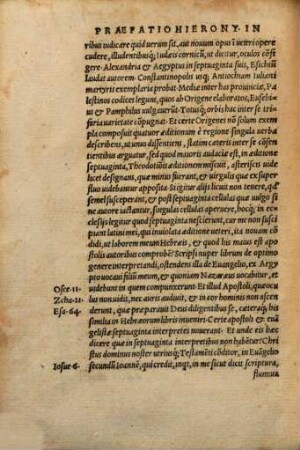 PRÆFATIO HIERONY. IN
ribus iudicare quod uerum sit, aut nouum opus ī ueteri opere
cudere, illudentibusq; Iudæis cornicū, ut dicitur, oculos confi
gere. Alexandria & Aegyptus in septuaginta suis, Esichiū
laudat autorem. Constantinopolis usq; Antiochiam Luciani
martyris exemplaria probat. Mediæ inter has prouinciæ, Pa
lestinos codices legunt, quos ab Origene elaboratos, Eusebius
& Pamphilus uulgauerūt. Totusq; orbis hac inter se tri-
faria uarietate cōpugnat. Et certe Origenes nō solum exem
pla composuit quatuor æditionum è regione singula uerba
describens, ut unus dissentiens, statim cæteris inter se consen
tientibus arguatur, sed quod maioris audaciæ est, in æditione
septuaginta, Theodotionis æditionem miscuit, asteriscis uide
licet designans, quæ minus fuerant, & uirgulis quæ ex super
fluo uidebantur apposita. Si igitur alijs licuit non tenere, qd'
semel susceperant, & post septuaginta cellulas quas uulgo si
ne autore iactantur, singulas cellulas aperuere, hocq; in eccle
sijs legitur quod septuaginta nescierunt, cur me non susci
piant latini mei, qui inuiolata æditione ueteri, ita nouam cō
didi, ut laborem meum Hebræis, & quod his maius est apo
stolis autoribus comprobē? Scripsi nuper librum de optimo
genere interpretandi, ostendens illa de Euangelio, ex Aegy
pto uocaui filiū meum, & quoniam Nazaræus uocabitur, et
Osee.11. uidebunt in quem compunxerunt. Et illud Apostoli, quæ ocu
Zcha.12 lus non uidit, nec auris audiuit, & in cor hominis non ascen
Esa.64. derunt, quæ præparauit Deus diligentibus se, cæteraq; his
similia in Hebræorum libris inueniri. Certe apostoli & euā
gelistæ septuaginta interpretes nouerant. Et unde eis hæc
dicere quæ in septuaginta interpretibus non habētur? Chri
stus dominus noster utriusq; Testamēti cōditor, in Euāgelio
Iosue 6. secundū Ioannē, qui credit, inqt, in me sicut dicit scriptura,
flumina